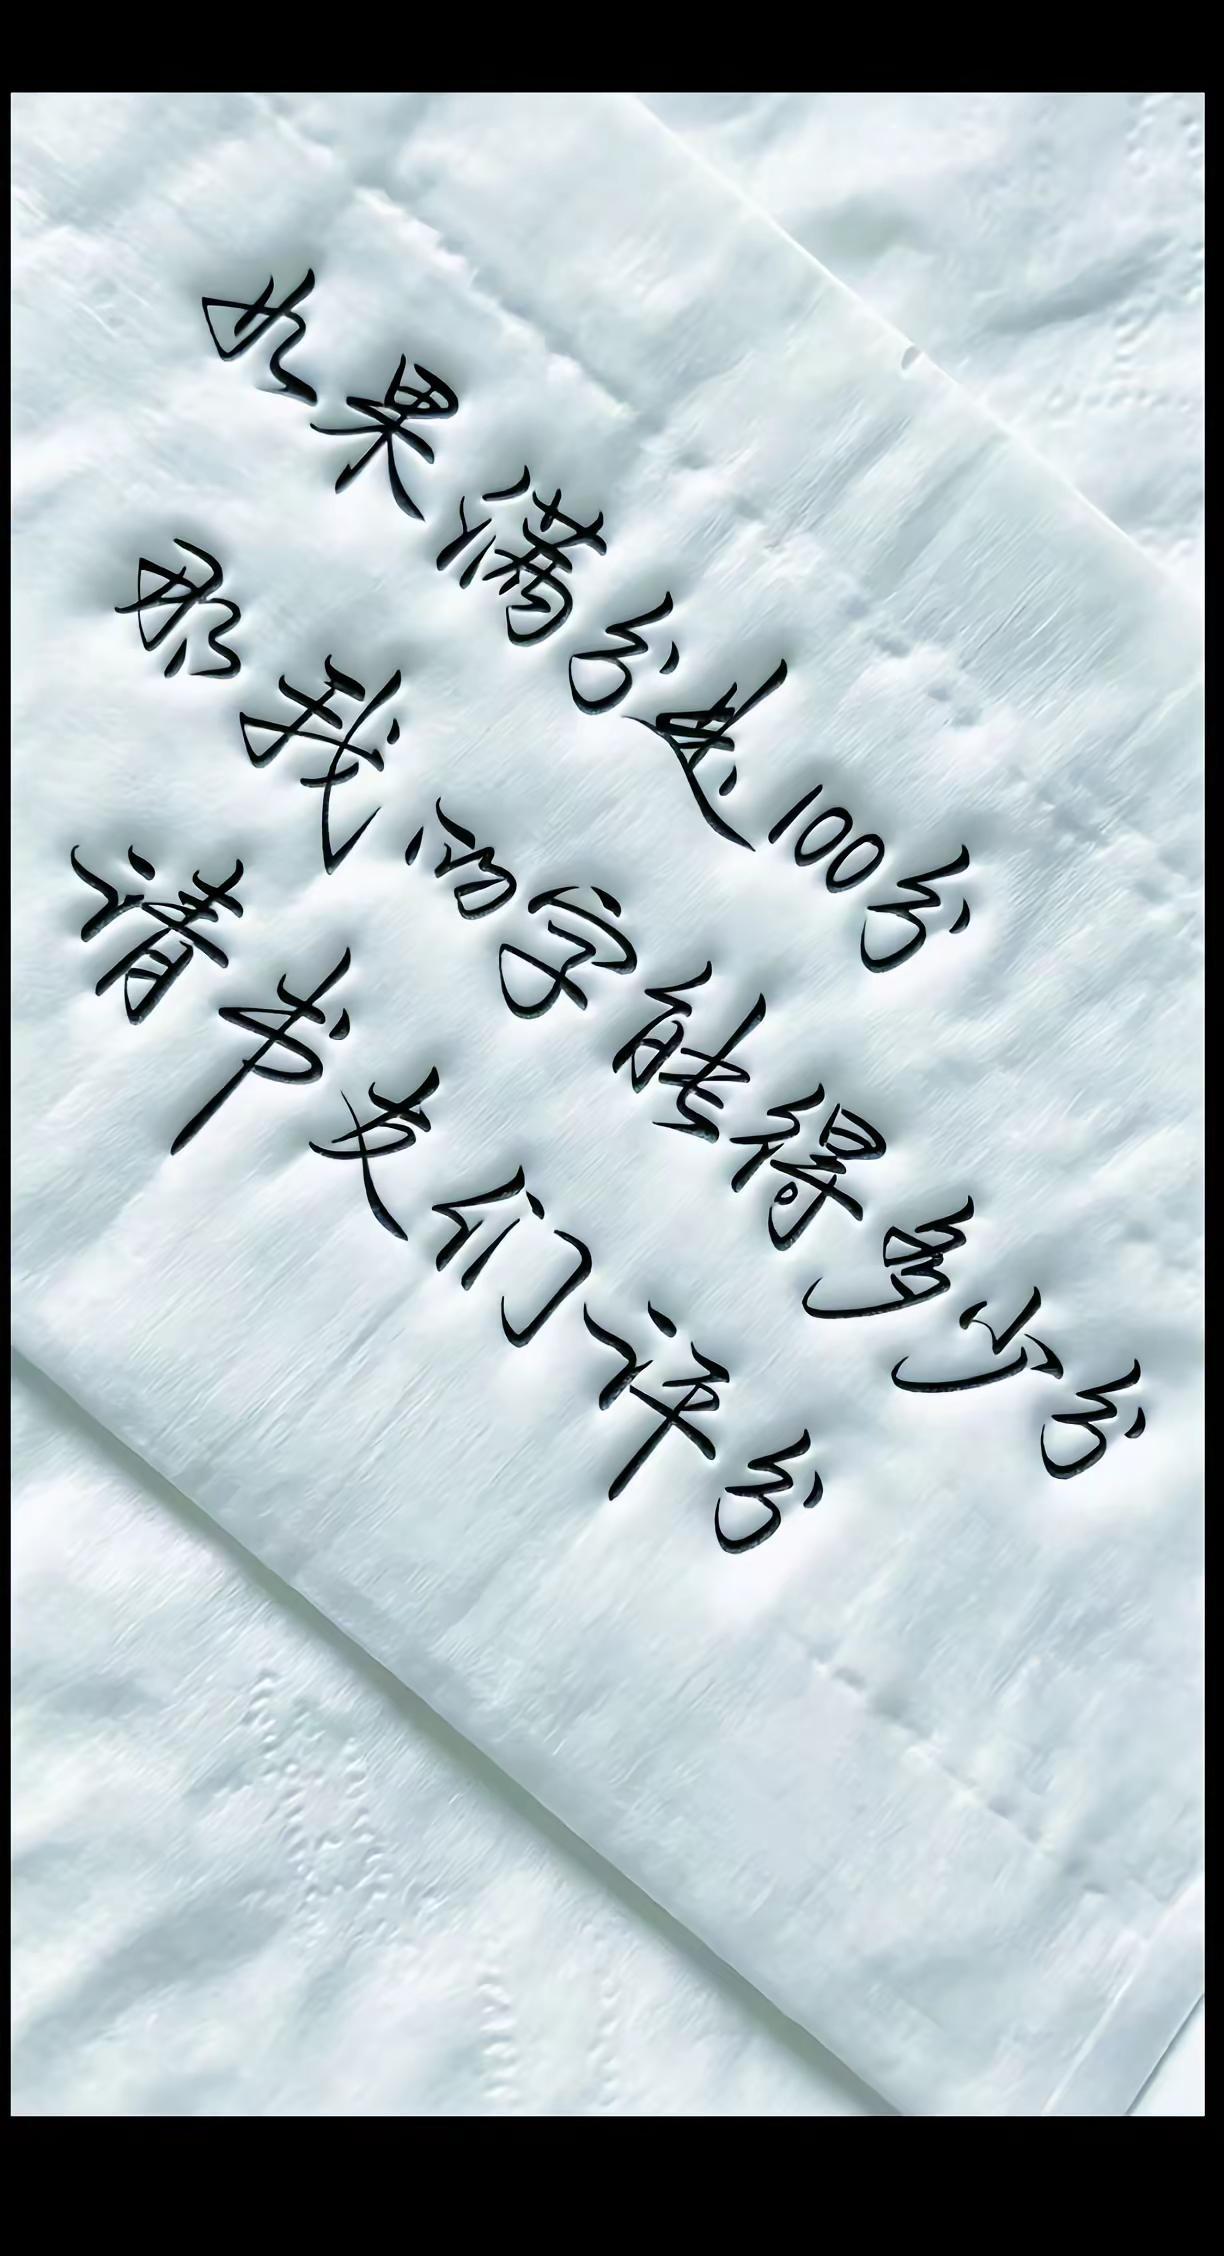 如果满分是100分
那我的字能得多少分
请书友们评分